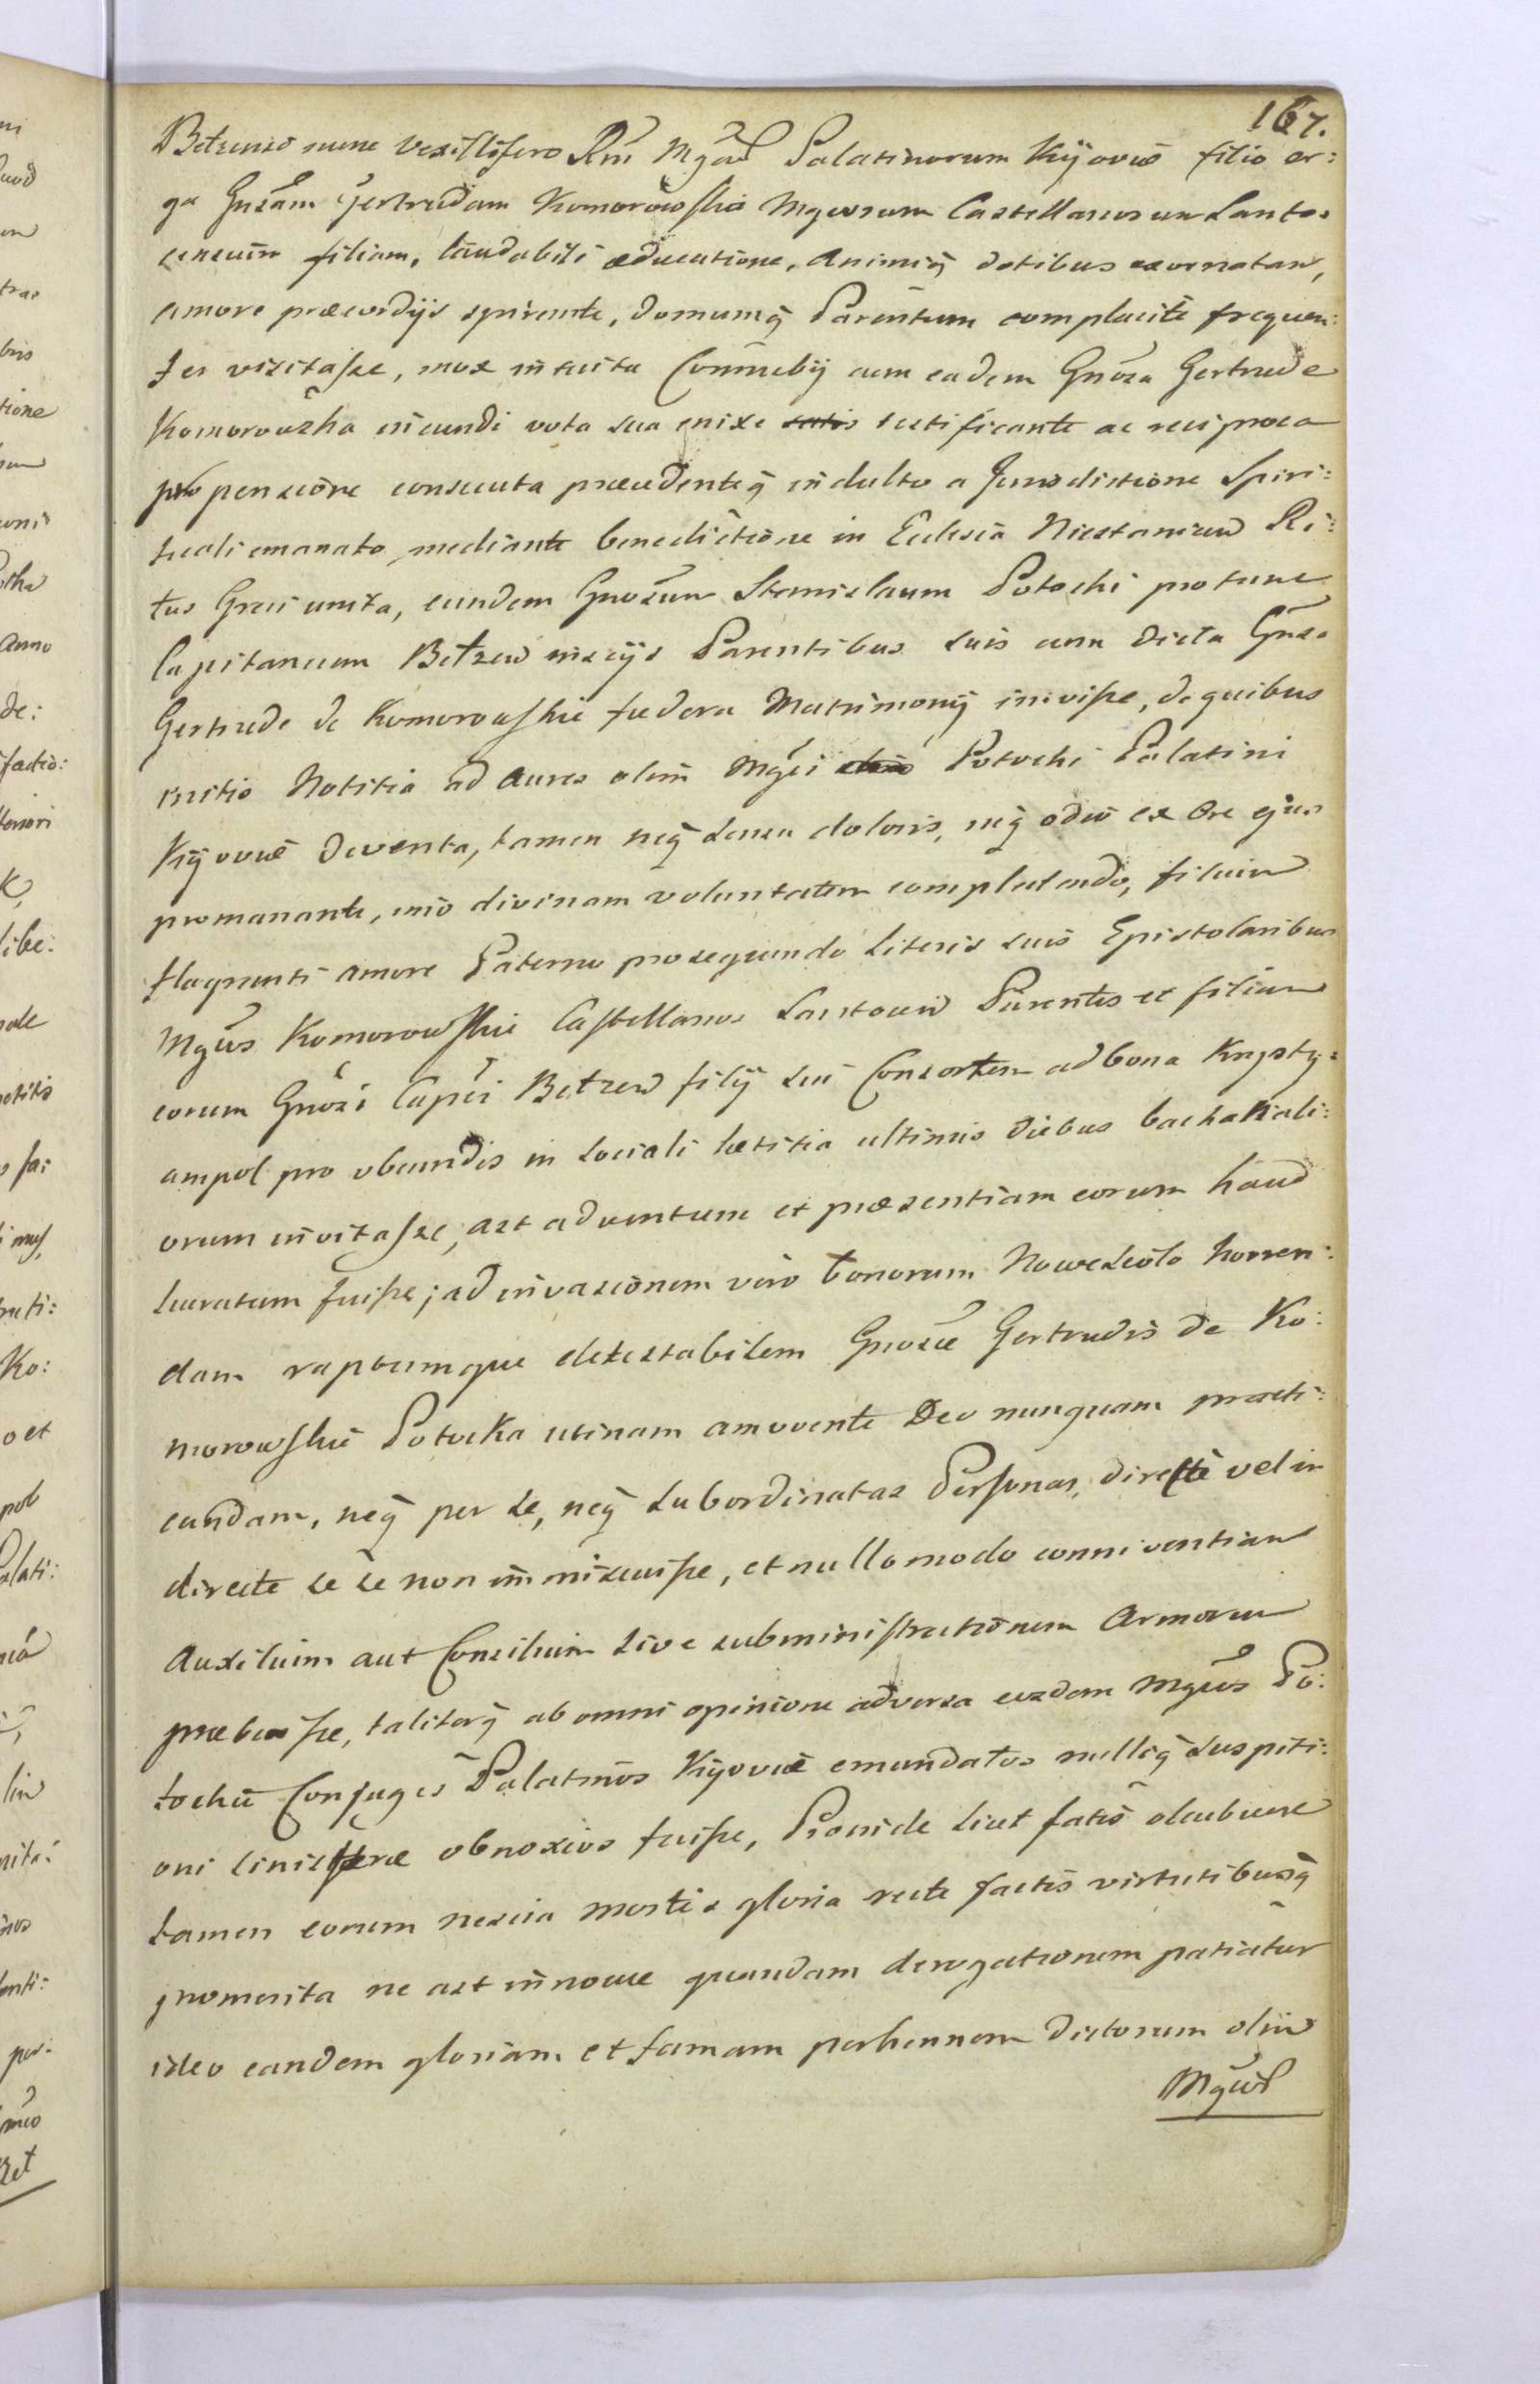 167.
Bełzensi nunc Vexillifero Rni Mgcorum Palatinorum Kijoviæ filio er:
ga Gnsam Gertrudam Komorowska Mgcorum Castellanorum Santo:
censium filiam, laudabili æducatione, Animiq dotibus exornatam,
amore præcordijs spirante, domumq Parentum complacite frequen:
ter visitasse, mox intuitu Connubij cum eadem Gnosa Gertrude
Komorowska ineundi vota sua enixe testificante ac reciproca
propensione consecuta præcedenteq indulto a Jurisdictione Spiri:
tuali emanato, mediante benedictione in Eclesia Niestanicen Ri:
tus Græci unita, eundem Gnosum Stanislaum Potocki protunc
Capitaneum Bełzen insciijs Parentibus suis cum dicta Gnsa
Gertrude de Komorowskie fædera Matrimonij inivisse, de quibus
initis Notitia ad Aures olim Mgci Potocki Palatini
Kijoviæ deventa, tamen neq sensu doloris, neq odio ex Ore ejus
promanante, imo divinam voluntatem complectendo, filium
flagranti amore Paterno prosequendo Literis suis Epistolaribus
Mgcos Komorowskie Castellanos Santocen Parentes et filiam
eorum Gnosi Capnei Bełzen filij sui Consortem ad bona Krysty:
ampol pro obeundis in sociali lætitia ultimis diebus bachanali:
orum invitasse, ast adventum et præsentiam eorum haud
securatum fuisse; ad invasionem vero bonorum Nowesioło horren:
dam raptumque detestabilem Gnosæ Gertrudis de Ko:
morowskie Potocka utinam amovente Deo nunquam practi:
candam, neq per se, neq subordinatas Personas, directe vel in
directe se se non immiscuisse, et nullo modo conniventiam
Auxilium aut Consilium sive subministrationem Armorum
præbuisse, taliterq ab omni opinione adversa eosdem Mgcos Po:
tockie Conjuges Palatinos Kijoviæ emundatos nulliq suspiti:
oni sinistræ obnoxios fuisse, Proinde licet fatis occubuere
tamen eorum nescia mortis gloria recte factis virtutibusq
promerita ne ast innocue quandam derogationem patiatur
ideo eandem gloriam et famam perhennem dictorum olim
Mgcorum